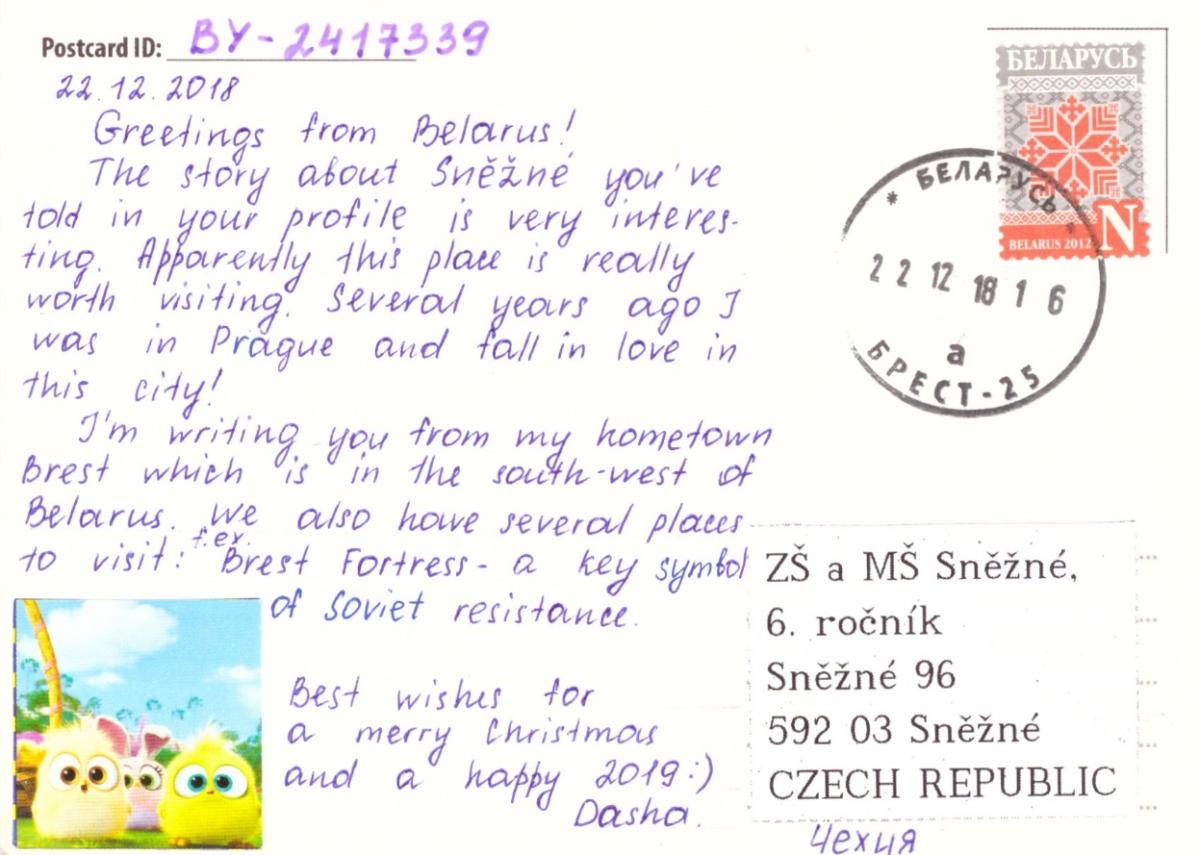 Postcard ID: BY-2417339
22.12.2018
Greetings from Belarus!
The story about Sněžné you've
told in your profile is very interes-
ting. Apparently this place is really
worth visiting. Several years ago I
was in Prague and fall in love in
this city!
I'm writing you from my hometown
Brest which is in the south-west of
Belarus. We also have several places
to visit: f.ex. Brest Fortress - a key symbol
of Soviet resistance.
Best wishes for
a merry Christmas
and a happy 2019:)
Dasha.
БЕЛАРУСЬ
BELARUS 2012 N
* БЕЛАРУСЬ *
22 12 18 1 6
а
БРЕСТ-25
ZŠ a MŠ Sněžné,
6. ročník
Sněžné 96
592 03 Sněžné
CZECH REPUBLIC
Чехия